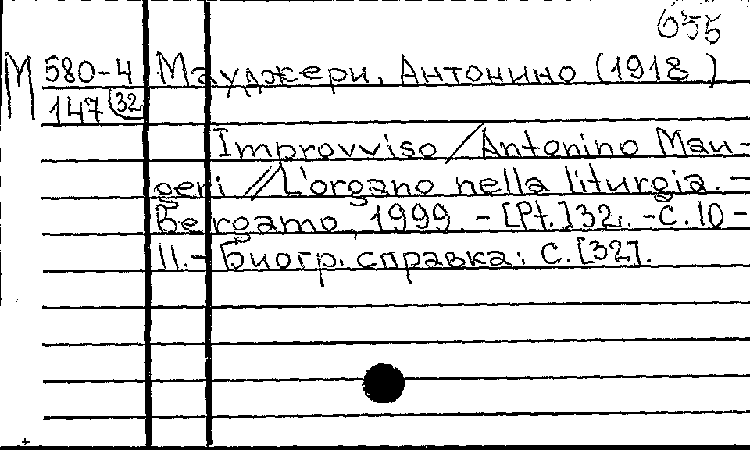 655
М 580-4 Мауджери, Антонино (1918 )
147 (32
Improvviso / Antonino Mau-
geri // L'organo nella liturgia. -
Bergamo, 1999. - [Pt.] 32. - С. 10 -
11. - Биогр. справка: С. [32].